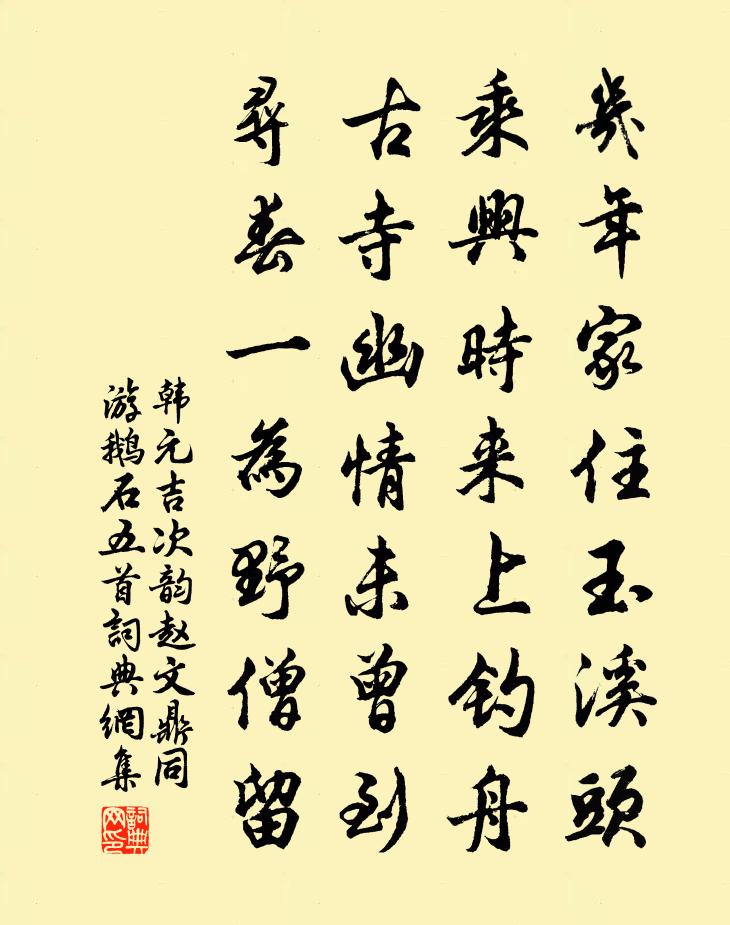 幾年家住玉溪頭
乘興時来上釣舟
古寺幽情未曾到
尋春一為野僧留
韩元吉次韵赵文鼎同
游鹅石五首詞典網集
詞典
网印